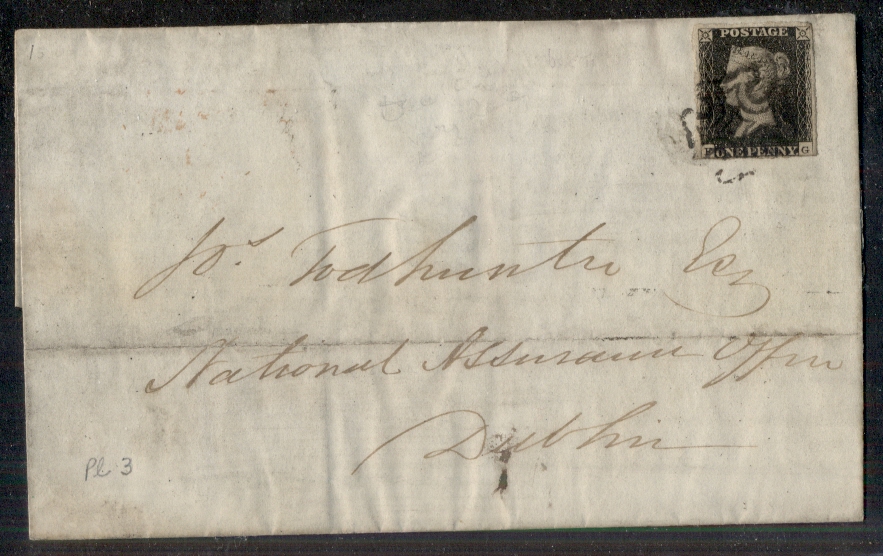 1
POSTAGE
ONE PENNY G
Todhunter Esq
National Assurance Office
Dublin
Pl 3